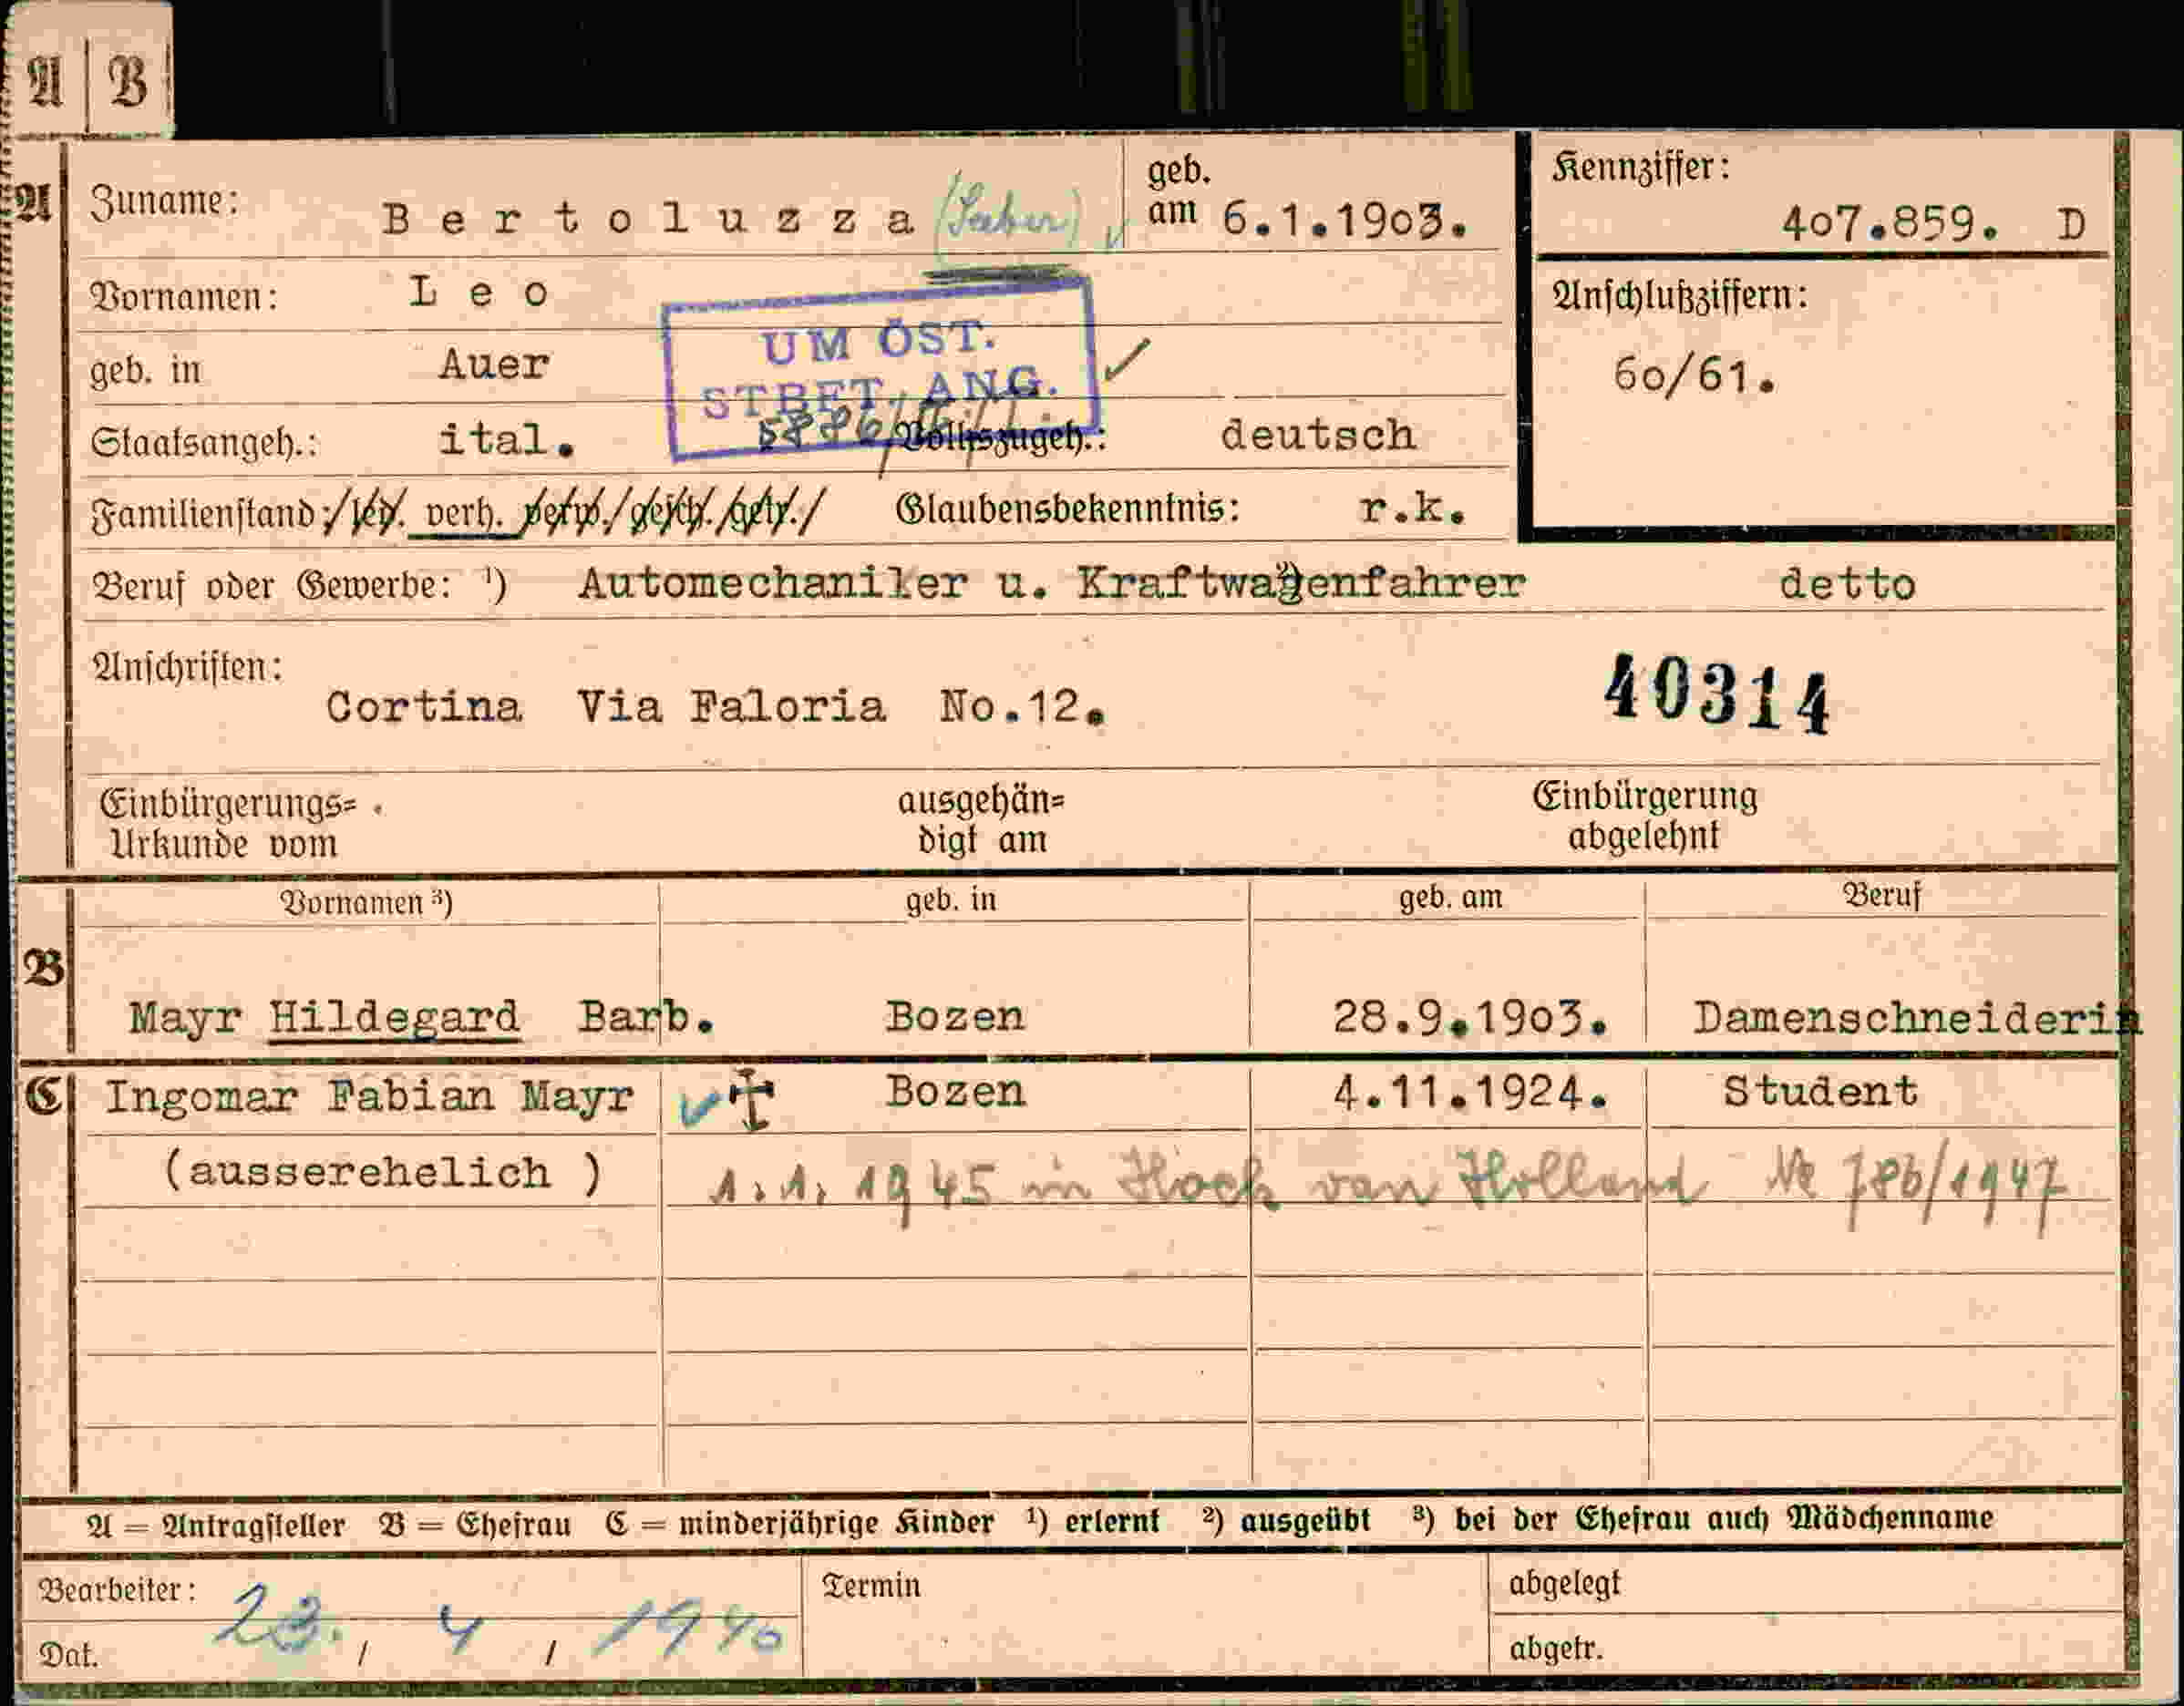 A B
A Zuname: Bertoluzza geb. am 6.1.1903. Kennziffer: 407.859. D
Vornamen: Leo Anschlußziffern:
UM ÖST.
geb. in Auer 60/61.
STBET. ANG.
Staatsangeh.: ital. Volkszugeh.: deutsch
Familienstand: led. verh. verw./gesch./getr./ Glaubensbekenntnis: r.k.
Beruf oder Gewerbe: ¹) Automechaniker u. Kraftwagenfahrer ²) detto
Anschriften:
Cortina Via Faloria No.12. 40314
Einbürgerungs= ausgehän= Einbürgerung
Urkunde vom digt am abgelehnt
B Vornamen ³) geb. in geb. am Beruf
Mayr Hildegard Barb. Bozen 28.9.1903. Damenschneiderin
C Ingomar Fabian Mayr Bozen 4.11.1924. Student
(ausserehelich ) 1.1.1945 in Hoek van Holland № 786/1947
A = Antragsteller B = Ehefrau C = minderjährige Kinder ¹) erlernt ²) ausgeübt ³) bei der Ehefrau auch Mädchenname
Bearbeiter: Termin abgelegt
Dat. 23. / 4 / 1940 abgetr.